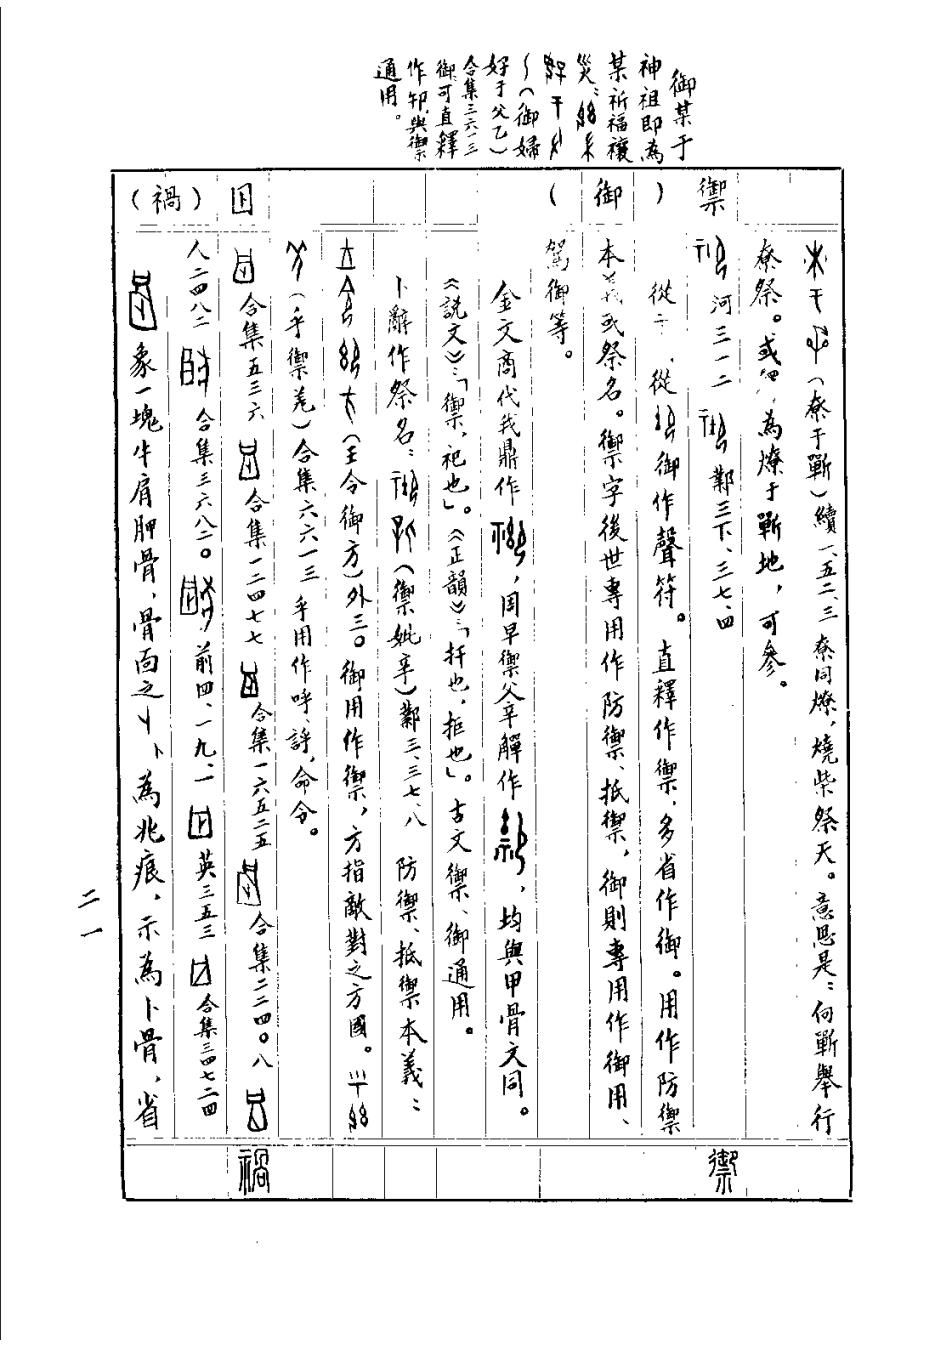 御某于
神祖即為
某祈福禳
災：
（御婦
好于父乙）
合集三六一三
御可直釋
作卸與禦
通用。
禦
（御）
（禱于蘄）續一、五二、三 尞同燎，燒柴祭天。意思是：向蘄舉行
尞祭。或 為燎于蘄地，可參。
河三一二 鄴三下、三七、四
從 ，從 御作聲符。直釋作禦，多省作御。用作防禦
本義或祭名。禦字後世專用作防禦、抵禦，御則專用作御用、
駕御等。
金文商代我鼎作 ，周早禦父辛觶作 ，均與甲骨文同。
《說文》：「禦，祀也」。《正韻》：「扞也，拒也」。古文禦、御通用。
卜辭作祭名： （禦妣辛）鄴三、三七、八 防禦、抵禦本義：
（王令御方）外三。御用作禦，方指敵對之方國。
（乎禦羌）合集六六一三 乎用作呼、評，命令。
禦
（禍）
合集五三六 合集一二四七七 合集一六五二五 合集二二四〇八
人二四八二 合集三六八二。 前四、一九、一 英三五三 合集三四七二四
象一塊牛肩胛骨，骨面之 卜為兆痕，示為卜骨，省
禍
二一